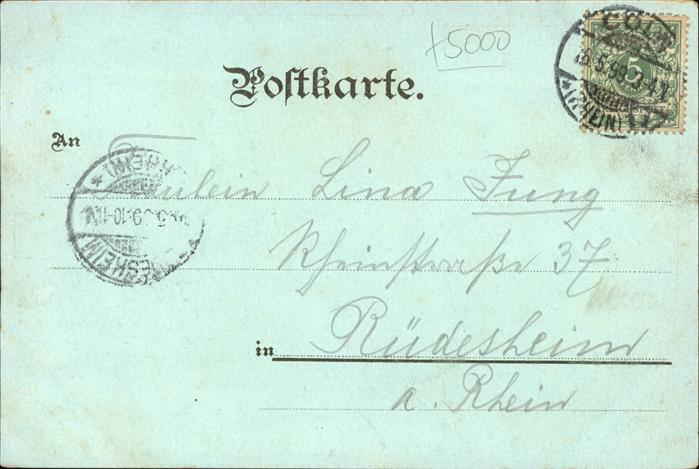 +5000
CÖLN
5
(RHEIN)
Postkarte.
An
Fräulein Lina Jung
(RHEIN)
RÜDESHEIM
Rheinstraße 37
in Rüdesheim
a. Rhein